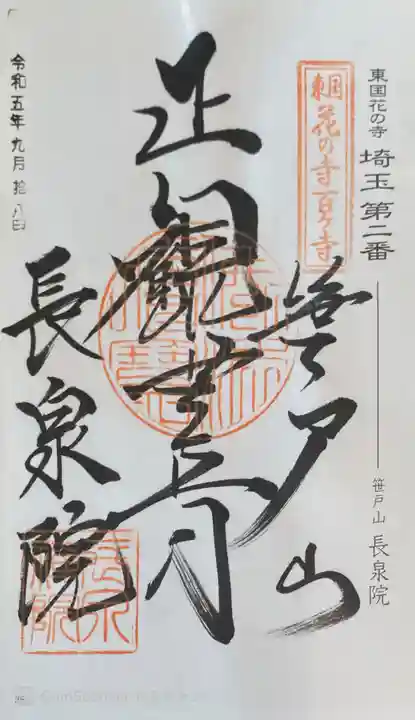 東国花の寺 埼玉第二番
笹戸山 長泉院
東国
花の寺百ヶ寺
笹戸山
正観世音
長泉院
令和五年九月拾八日